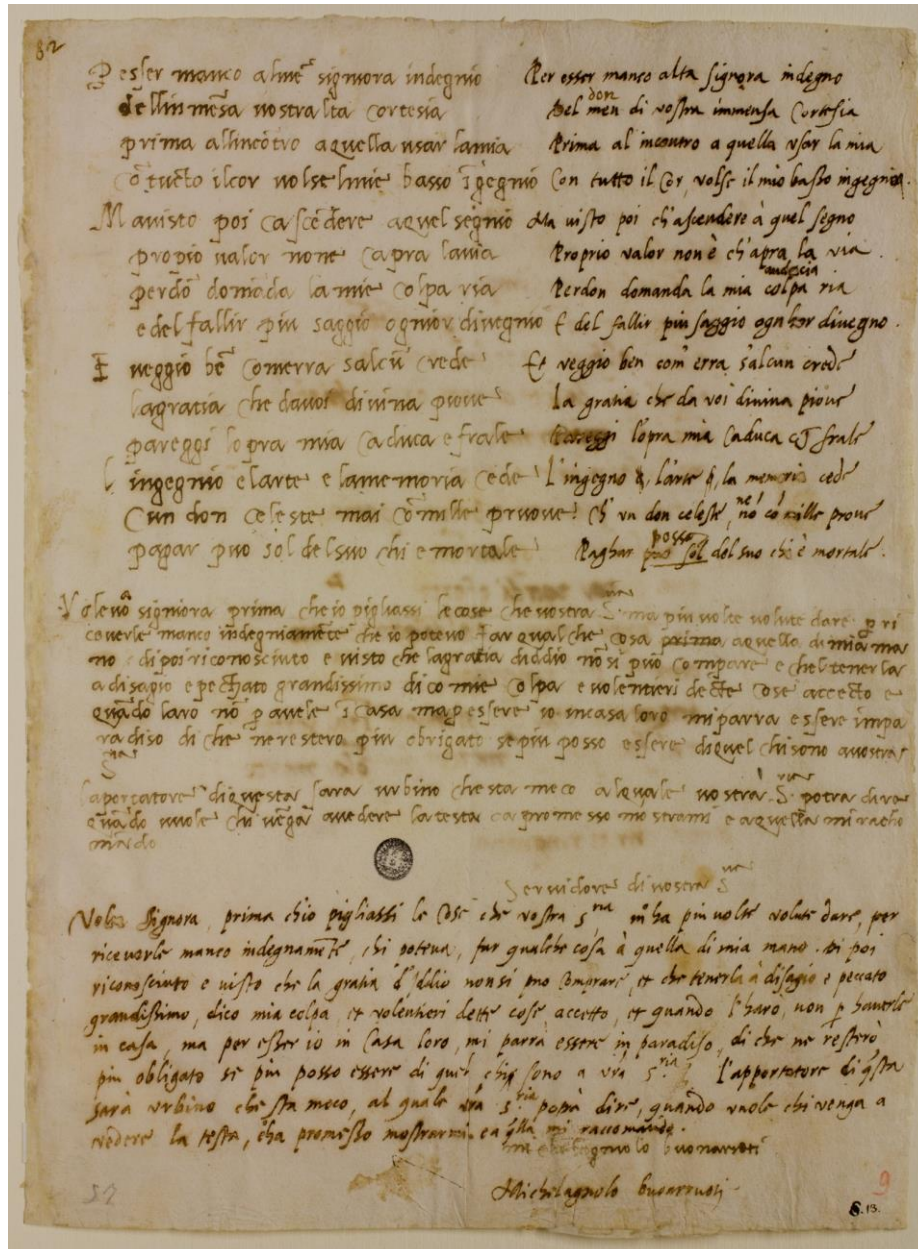 82
P esser manco almē signiora indegnio
dellinmēsa vostralta cortesia
prima allincōtro aquella usar lamia
cō tucto ilcor volse lmie basso īgegnio
Mavisto poi cascēdere aquel segnio
propio valor none capra lavia
perdō domāda lamie colpa ria
e del fallir piu saggio ognior divegnio
E veggio bē comerra salcū crede
lagratia che davoi divina piove
pareggi lopra mia caduca e frale
l ingegnio elarte e lamemoria cede
cun don celeste mai cōmille pruove
pagar puo sol delsuo chi e mortale
Per esser manco alta signora indegno
Del don men di vostra immensa Cortesia
Prima al incontro a quella usar la mia
Con tutto il Cor, volse il mio basso ingegno.
Ma visto poi ch'ascendere à quel segno
Proprio valor non è ch'apra la via.
Perdon domanda la mia colpa audacia ria
E del fallir piu saggio ogn hor divegno.
Et veggio ben com' erra s'alcun crede
La gratia che da voi divina piove
Pareggi l'opra mia Caduca et frale
L'ingegno, l'arte, la memoria cede
Ch' un don celeste, ne' nō cō mille prove
Paghar puo sol posso del suo chi è mortale.
Volevo signiora prima cheio pigliassi lecose che vostra S.ria ma piu volte volute dare p ri
ceverle manco indegniamēte cheio potevo far qualche cosa prima aquella di mia ma
no e dipoi riconosciuto e visto che lagratia diddio nōsi puo compare e chel tenerla
adisagio e pechato grandissimo dico mie colpa e volentieri decte cose accecto e
quādo larò nō p avele ī casa ma p essere io incasa loro mi parra essere impa
radiso di che ne restero piu obrigato se piu posso essere di quel chi sono avostra
S.ria
laportatore di questa sara urbino che sta meco alquale vostra S.ria potra dire
quādo vuole chi vēga avedere latesta cagromesso mostrarmi e aquella mi racho
mādo
Servidore di vostra S.ria
Voleva Signora, prima chio pigliassi le Cose che vostra S.ria m'ha piu volte volute dare, per
riceverle manco indegnamēte, chi poteva, far qualche cosa à quella di mia mano. Di poi
riconosciuto e visto che la gratia d'Iddio non si puo Comprare, et che tenerla à disagio e peccato
grandissimo, dico mia colpa, et volentieri dette cose accetto, et quando l'harò, non p haverle
in casa, ma per esser iò in Casa loro, mi parrà essere in paradiso, di che ne resterò
piu obligato se piu posso essere di quel chi sono a vra S.ria. l'apportatore di q̄sta
sarà urbino che sta meco, al quale vra S.ria potrà dire, quando vuole chi venga a
vedere la testa, ch'a promesso mostrarmi. e a q̄lla mi raccomando.
michelagniolo buonarroti
Michelagnolo buonarruoti.
52
9
S. 13.